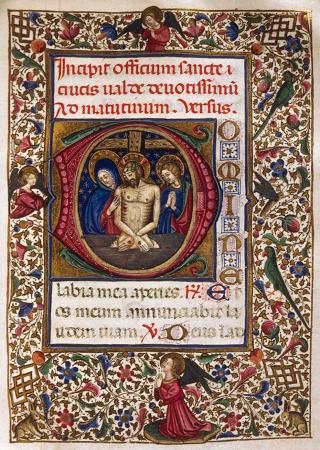 Incipit officium sancte
crucis ualde deuotissimũ
Ad matutinum. Versus.
DOMINE
labia mea aperies. R. Et
os meum annunciabit la
udem tuam V Deus iad